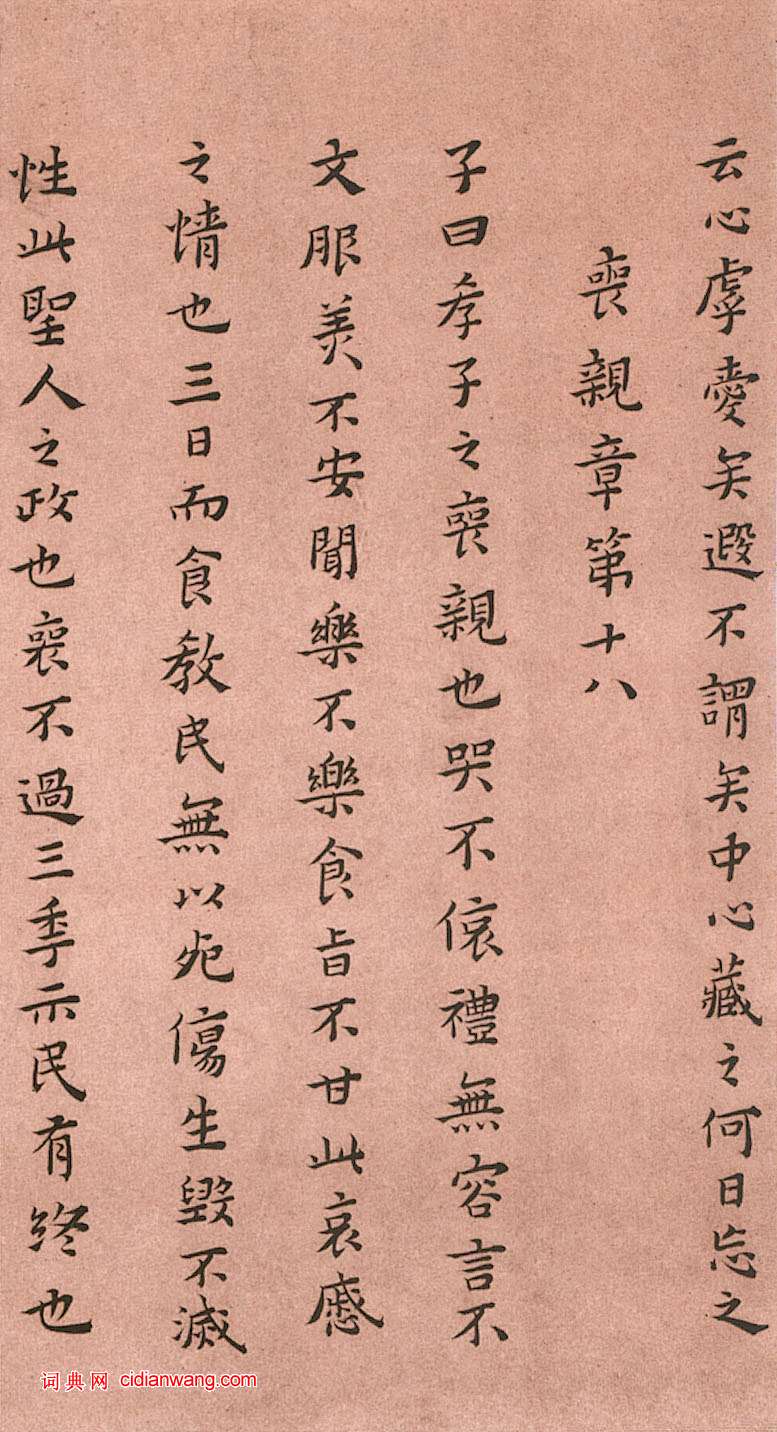 云心虖愛矣遐不謂矣中心藏之何日忘之
喪親章第十八
子曰孝子之喪親也哭不偯禮無容言不
文服美不安聞樂不樂食旨不甘此哀慼
之情也三日而食教民無以死傷生毀不滅
性此聖人之政也喪不過三年示民有終也
词典网 cidianwang.com